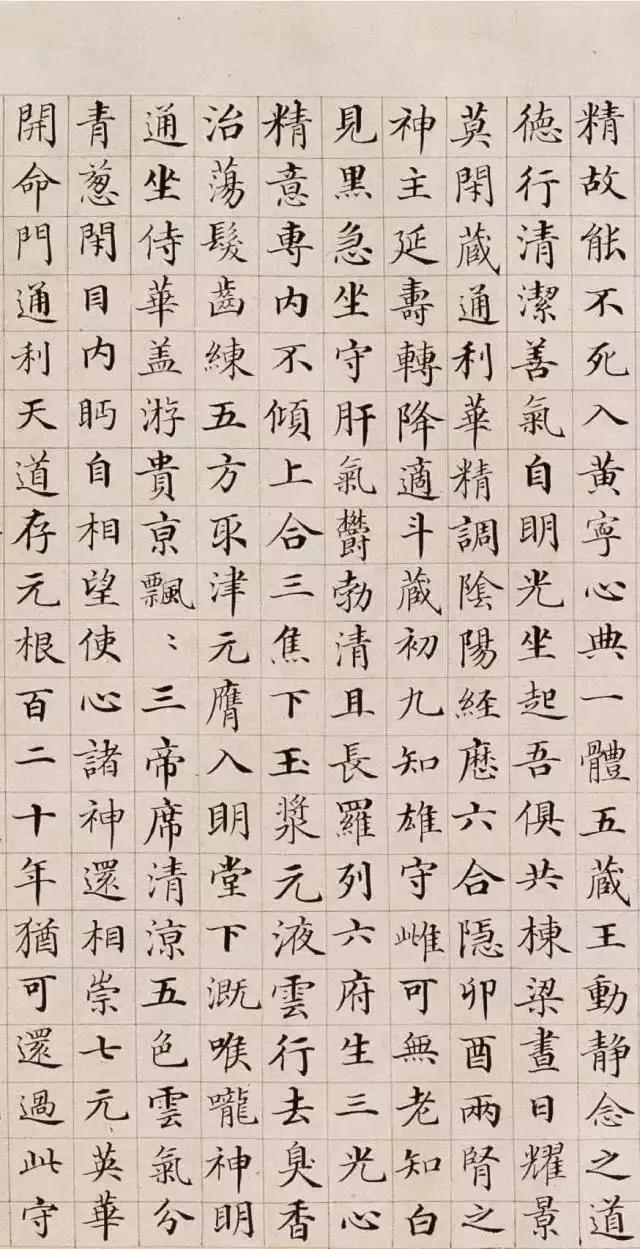 精故能不死入黄寧心典一體五蔵王動静念之道
徳行清潔善氣自明光坐起吾俱共棟梁晝日耀景
莫閇蔵通利華精調陰陽経歴六合隠卯酉兩腎之
神主延壽轉降適斗蔵初九知雄守雌可無老知白
見黒急坐守肝氣欝勃清且長羅列六府生三光心
精意専内不傾上合三焦下玉漿元液雲行去臭香
治蕩髪齒練五方取津元膺入明堂下溉喉嚨神明
通坐侍華盖游貴亰飄〻三帝席清涼五色雲氣分
青葱閇目内眄自相望使心諸神還相崇七元英華
開命門通利天道存元根百二十年猶可還過此守